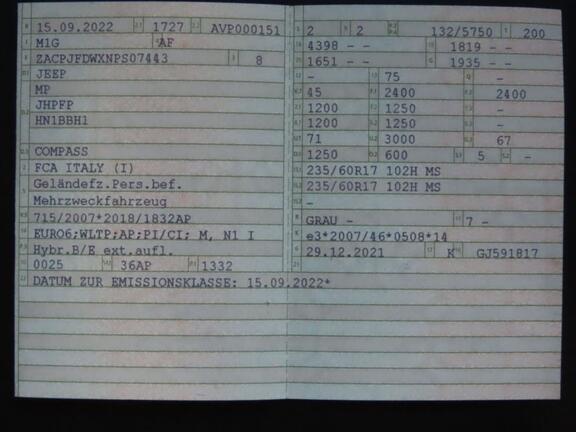 15.09.2022 1727 AVP000151
M1G AF
ZACPJFDWXNPS07443 8
JEEP
MP
JHPFP
HN1BBH1
COMPASS
FCA ITALY (I)
Geländefz.Pers.bef.
Mehrzweckfahrzeug
715/2007*2018/1832AP
EURO6;WLTP;AP;PI/CI; M, N1 I
Hybr.B/E ext.aufl.
0025 36AP 1332
DATUM ZUR EMISSIONSKLASSE: 15.09.2022*
2 2 132/5750 200
4398 - - 1819 - -
1651 - - 1935 - -
- 75 -
45 2400 2400
1200 1250 -
1200 1250 -
71 3000 67
1250 600 5 -
235/60R17 102H MS
235/60R17 102H MS
-
GRAU - 7 -
e3*2007/46*0508*14
29.12.2021 K GJ591817